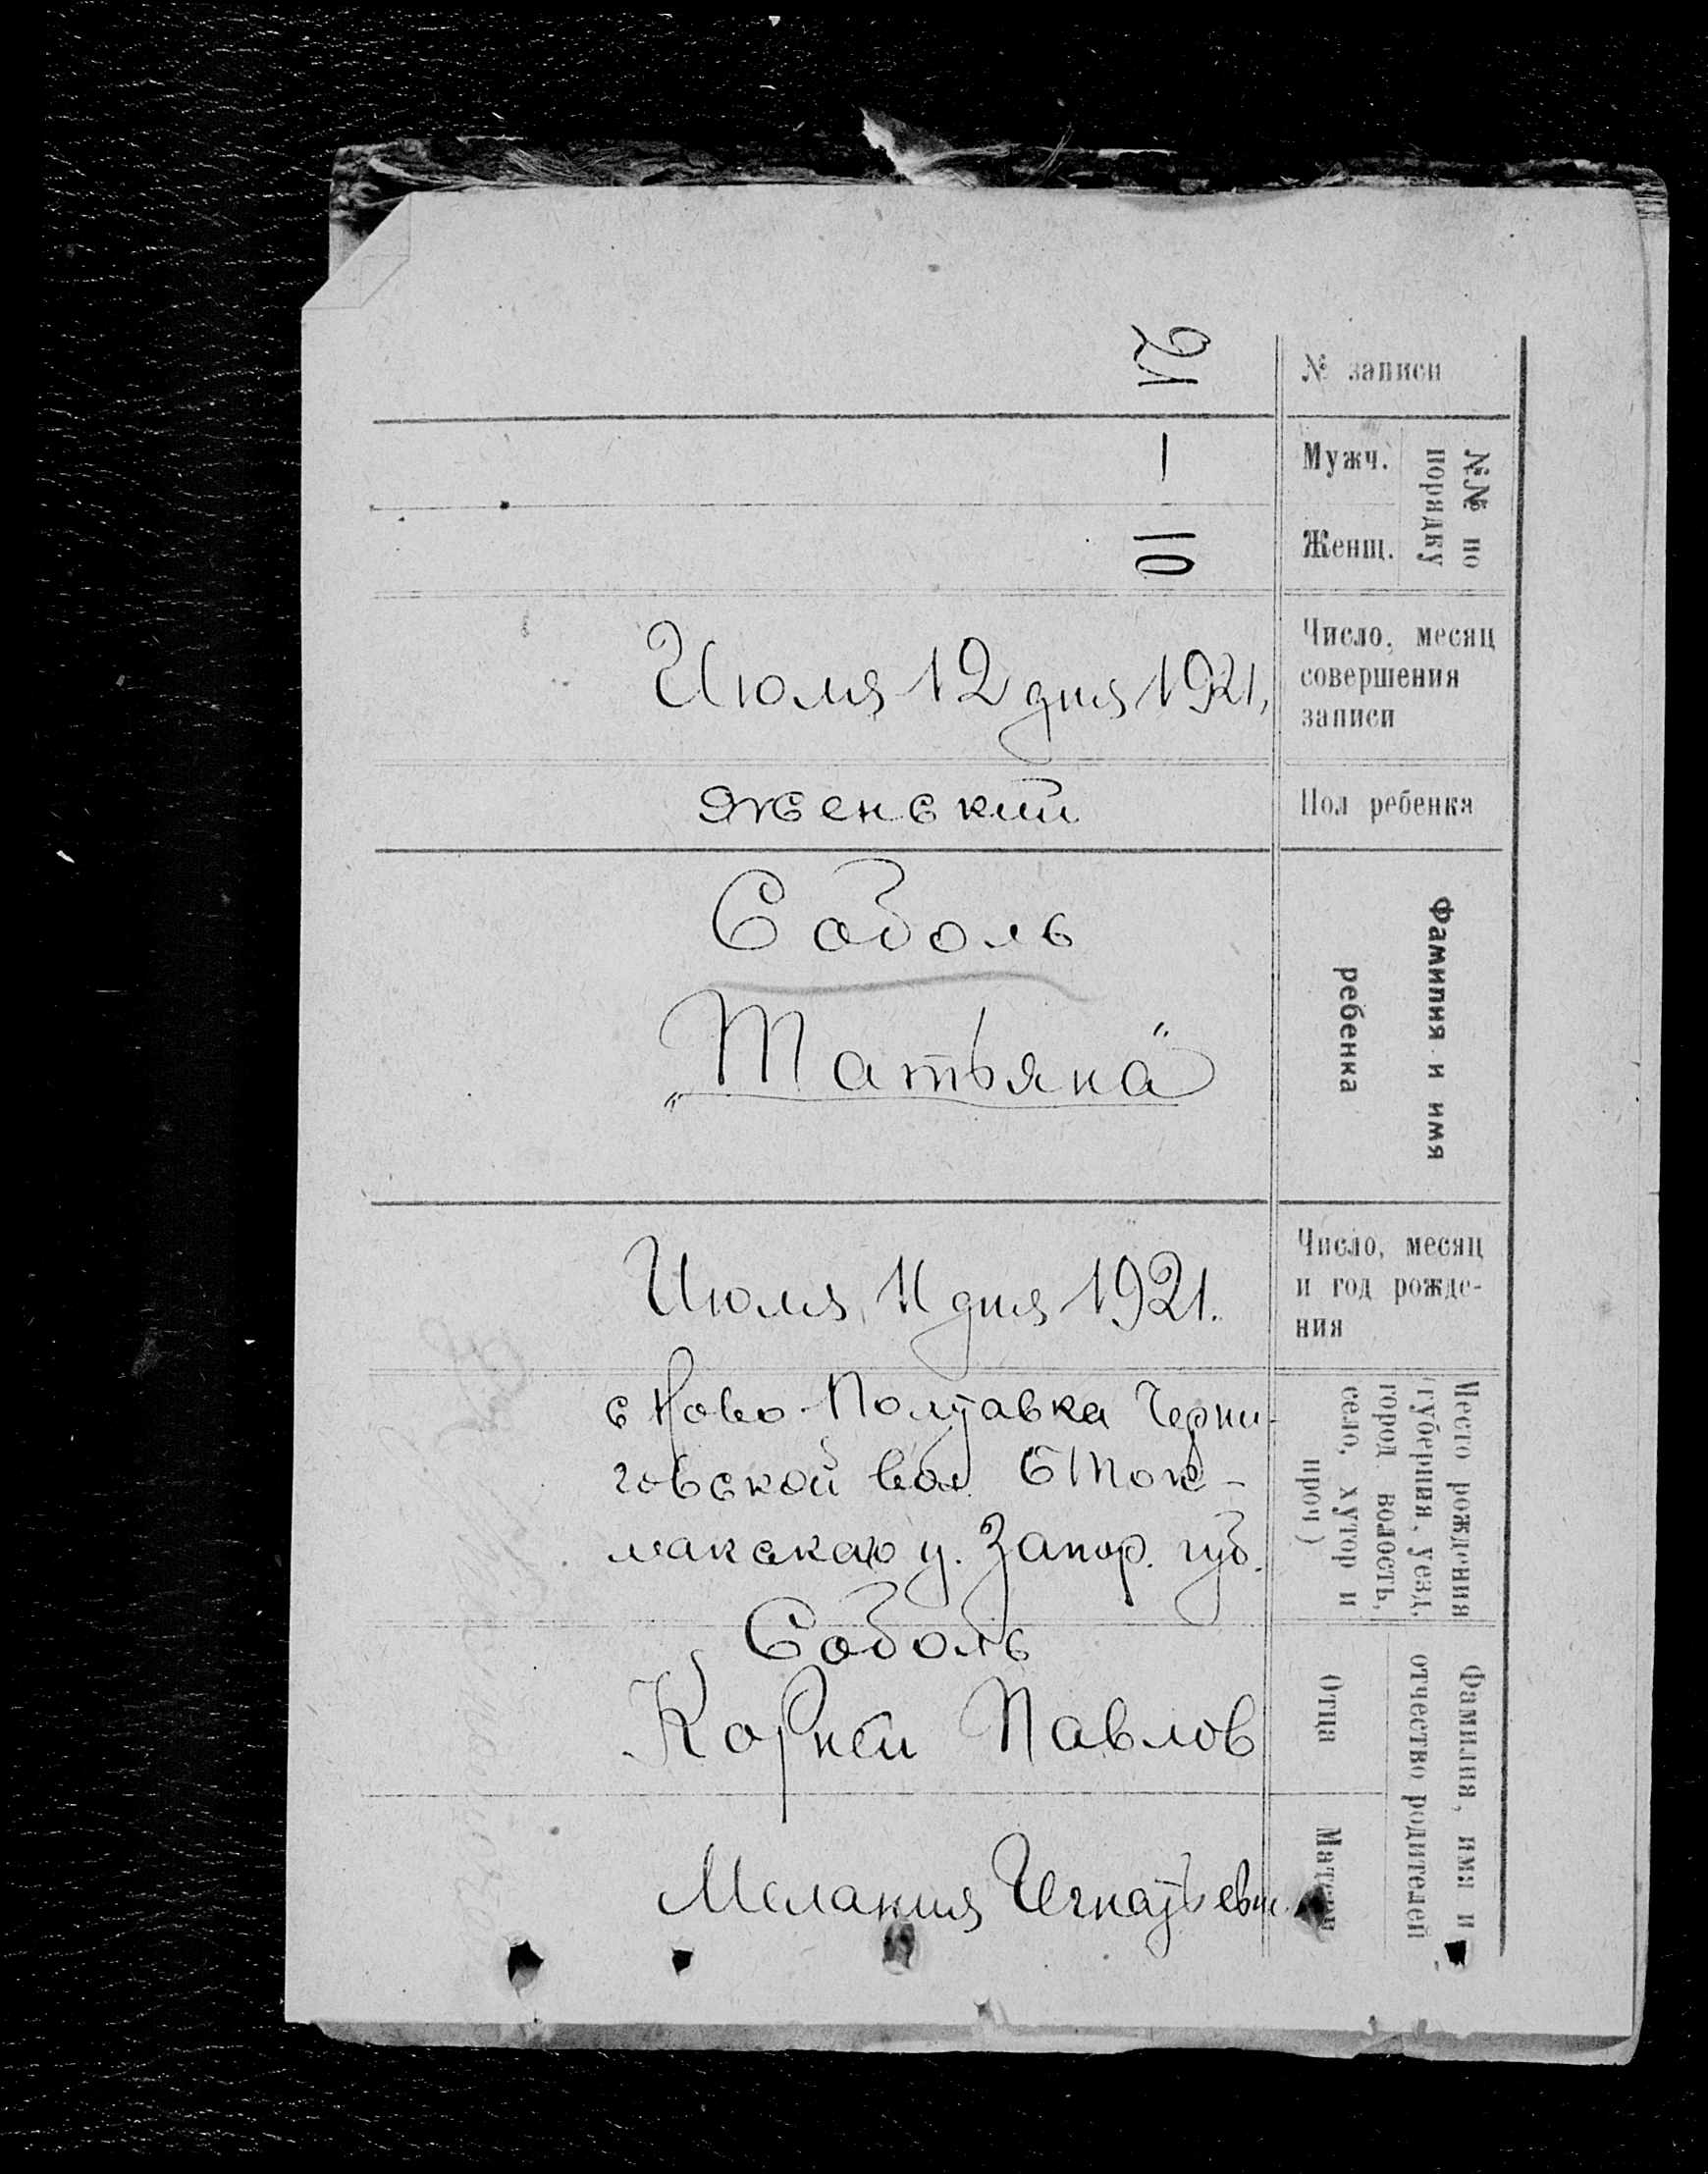 № записи
21
№№ по
порядку
Мужч.
—
Женщ.
10
Число, месяц
совершения
записи
Июля 12 дня 1921,
Пол ребенка
женский
Фамилия и имя
ребенка
Соболь
„Татьяна"
Число, месяц
и год рожде-
ния
Июля 11 дня 1921.
Место рождения
(губерния, уезд,
город волость,
село, хутор и
проч)
с Ново-Полтавка Черни-
говской вол Б Ток-
макскаго у. Запор. губ.
Фамилия, имя и
отчество родителей
Отца
Соболь
Корней Павлов
Матери
Мелания